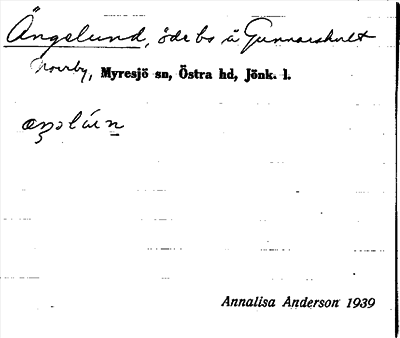 Ängelund, öde bs å Gunnarshult
Norrby, Myresjö sn, Östra hd, Jönk. l.
Annalisa Anderson 1939